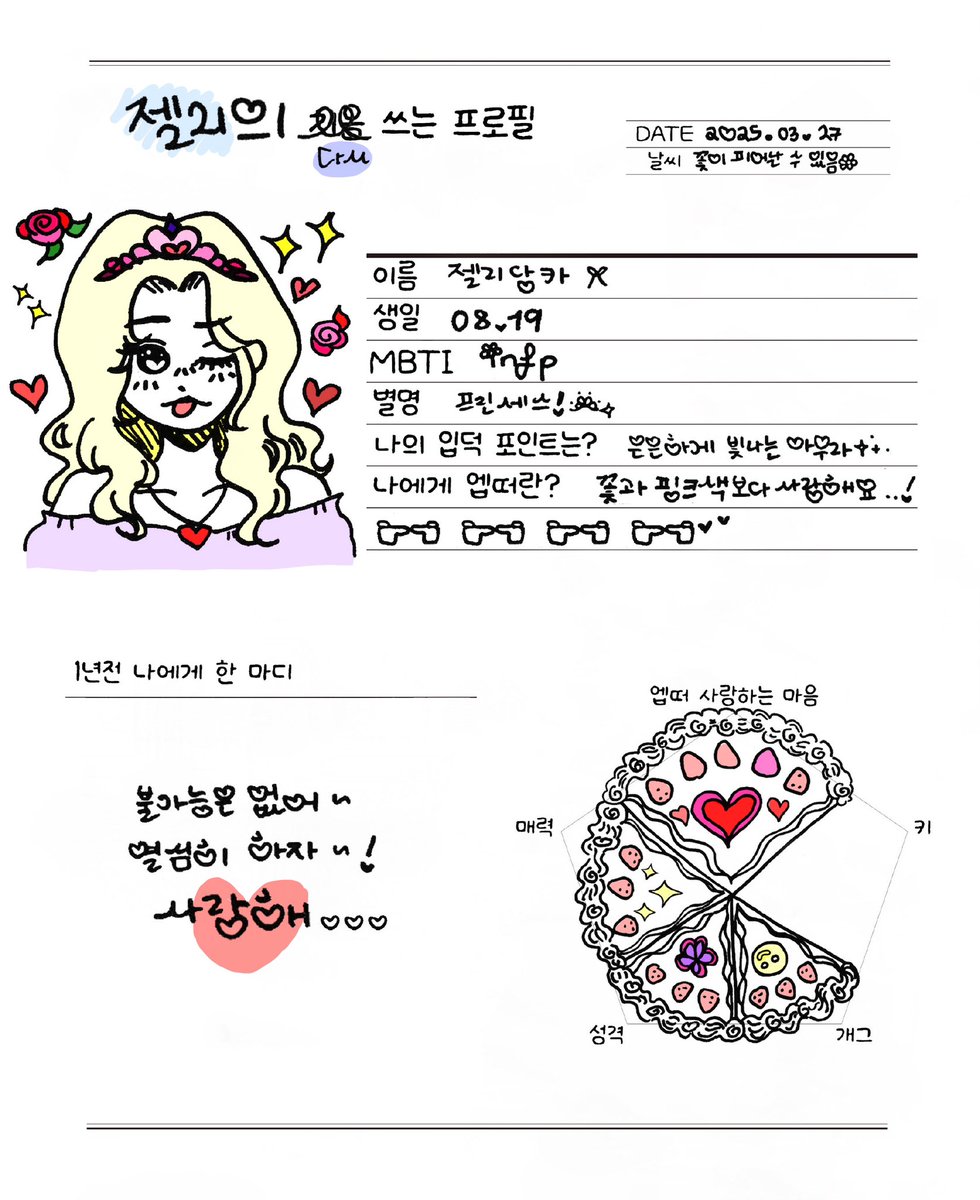 젤리의 처음 쓰는 프로필
다시
DATE 2025.03.27
날씨 꽃이 피어난 수 있음
이름 젤리당카 X
생일 08.19
MBTI infp
별명 프린세스!
나의 입덕 포인트는? 은은하게 빛나는 아우라
나에게 엡떠란? 꽃과 핑크색보다 사랑해요..!
1년전 나에게 한 마디
불가능은 없어~
열심히 하자~!
사랑해
엡떠 사랑하는 마음
매력
키
성격
개그